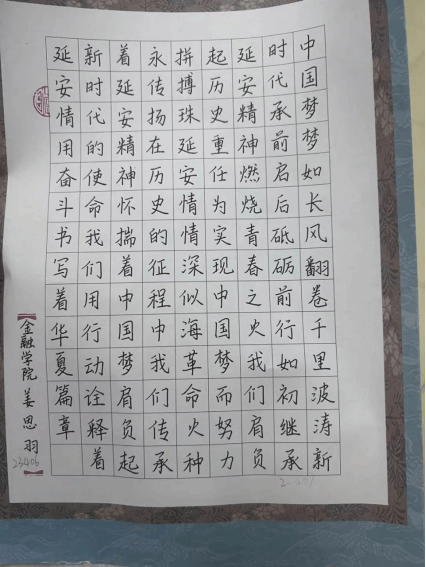 中国梦梦如长风翻卷千里波涛新
时代承前启后砥砺前行如初继承
延安精神燃烧青春之火我们肩负
起历史重任为实现中国梦而努力
拼搏珠延安情情深似海革命火种
永传扬在历史的征程中我们传承
着延安精神怀揣着中国梦肩负起
新时代的使命我们用行动诠释着
延安情用奋斗书写着华夏篇章
金融学院 姜思羽